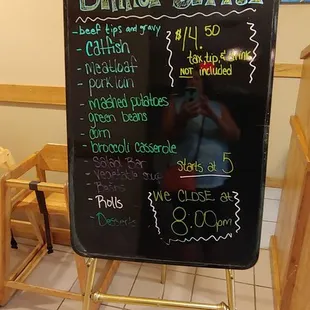 Dinner Buffet
- beef tips and gravy
- Catfish
- Meatloaf
- pork loin
- mashed potatoes
- green beans
- corn
- broccoli casserole
- Salad Bar
- vegetable soup
- Beans
- Rolls
- Desserts
$14.50
tax, tip, & drink
NOT included
Starts at 5
WE CLOSE at
8:00pm